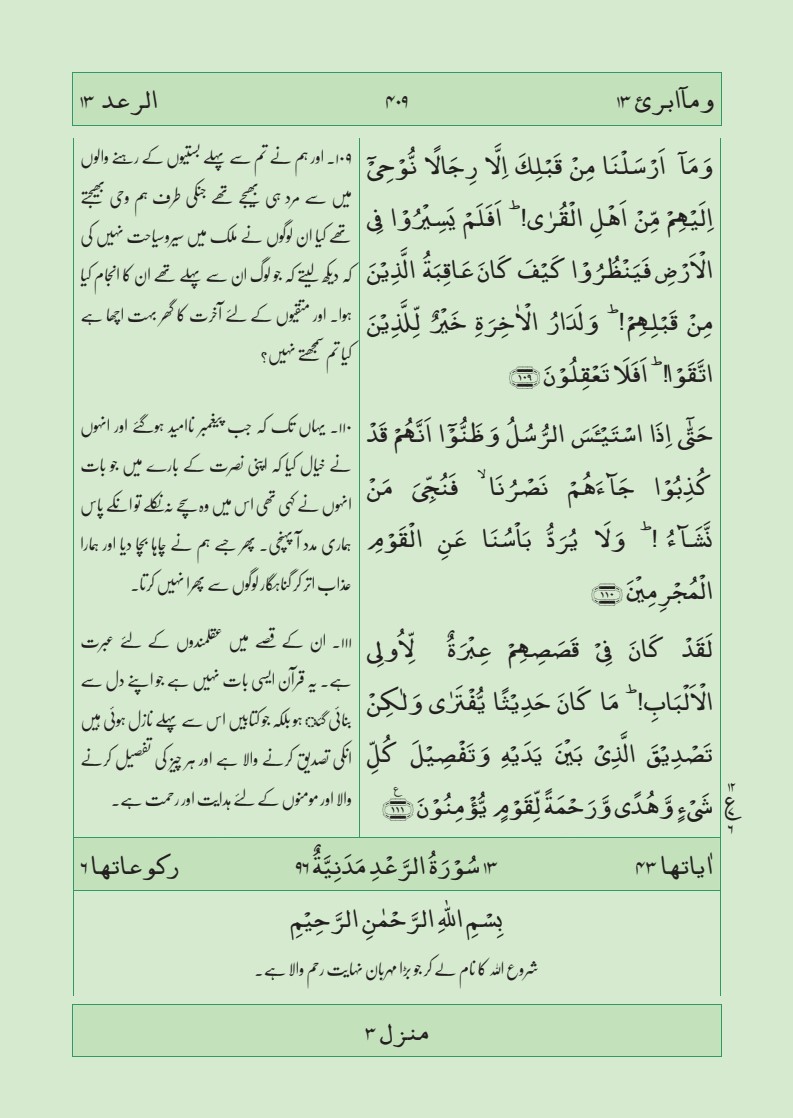 ومآابرئ ۱۳
۴۰۹
الرعد ۱۳
وَمَاۤ اَرۡسَلۡنَا مِنۡ قَبۡلِكَ اِلَّا رِجَالًا نُّوۡحِىۡۤ
اِلَيۡهِمۡ مِّنۡ اَهۡلِ الۡقُرٰى‌ؕ! اَفَلَمۡ يَسِيۡرُوۡا فِى
الۡاَرۡضِ فَيَنۡظُرُوۡا كَيۡفَ كَانَ عَاقِبَةُ الَّذِيۡنَ
مِنۡ قَبۡلِهِمۡ‌ؕ! وَلَدَارُ الۡاٰخِرَةِ خَيۡرٌ لِّلَّذِيۡنَ
اتَّقَوۡا‌ ؕ! اَفَلَا تَعۡقِلُوۡنَ ﴿۱۰۹﴾
حَتّٰۤى اِذَا اسۡتَيۡـَٔسَ الرُّسُلُ وَظَنُّوۡۤا اَنَّهُمۡ قَدۡ
كُذِبُوۡا جَآءَهُمۡ نَصۡرُنَا ۙ فَنُجِّىَ مَنۡ
نَّشَآءُ‌ ؕ! وَلَا يُرَدُّ بَاۡسُنَا عَنِ الۡقَوۡمِ
الۡمُجۡرِمِيۡنَ ﴿۱۱۰﴾
لَقَدۡ كَانَ فِىۡ قَصَصِهِمۡ عِبۡرَةٌ لِّاُولِى
الۡاَلۡبَابِ‌ؕ! مَا كَانَ حَدِيۡثًا يُّفۡتَرٰى وَلٰـكِنۡ
تَصۡدِيۡقَ الَّذِىۡ بَيۡنَ يَدَيۡهِ وَتَفۡصِيۡلَ كُلِّ
شَىۡءٍ وَّهُدًى وَّرَحۡمَةً لِّقَوۡمٍ يُّؤۡمِنُوۡنَ ﴿۱۱۱﴾ ع
۱۲
ع
۶
۱۰۹۔ اور ہم نے تم سے پہلے بستیوں کے رہنے والوں
میں سے مرد ہی بھیجے تھے جنکی طرف ہم وحی بھیجتے
تھے کیا ان لوگوں نے ملک میں سیروسیاحت نہیں کی
کہ دیکھ لیتے کہ جو لوگ ان سے پہلے تھے ان کا انجام کیا
ہوا۔ اور متقیوں کے لئے آخرت کا گھر بہت اچھا ہے
کیا تم سمجھتے نہیں؟
۱۱۰۔ یہاں تک کہ جب پیغمبر ناامید ہوگئے اور انہوں
نے خیال کیا کہ اپنی نصرت کے بارے میں جو بات
انہوں نے کہی تھی اس میں وہ سچے نہ نکلے تو انکے پاس
ہماری مدد آ پہنچی۔ پھر جسے ہم نے چاہا بچا دیا اور ہمارا
عذاب اتر کر گناہگار لوگوں سے پھرا نہیں کرتا۔
۱۱۱۔ ان کے قصے میں عقلمندوں کے لئے عبرت
ہے۔ یہ قرآن ایسی بات نہیں ہے جو اپنے دل سے
بنائی گئ ہو بلکہ جو کتابیں اس سے پہلے نازل ہوئی ہیں
انکی تصدیق کرنے والا ہے اور ہر چیز کی تفصیل کرنے
والا اور مومنوں کے لئے ہدایت اور رحمت ہے۔
اٰیاتها ۴۳
۱۳ سُوۡرَةُ الرَّعۡدِ مَدَنِيَّةٌ ۹۶
رکوعاتها ۶
بِسۡمِ اللّٰهِ الرَّحۡمٰنِ الرَّحِيۡمِ
شروع اللہ کا نام لے کر جو بڑا مہربان نہایت رحم والا ہے۔
منزل ۳